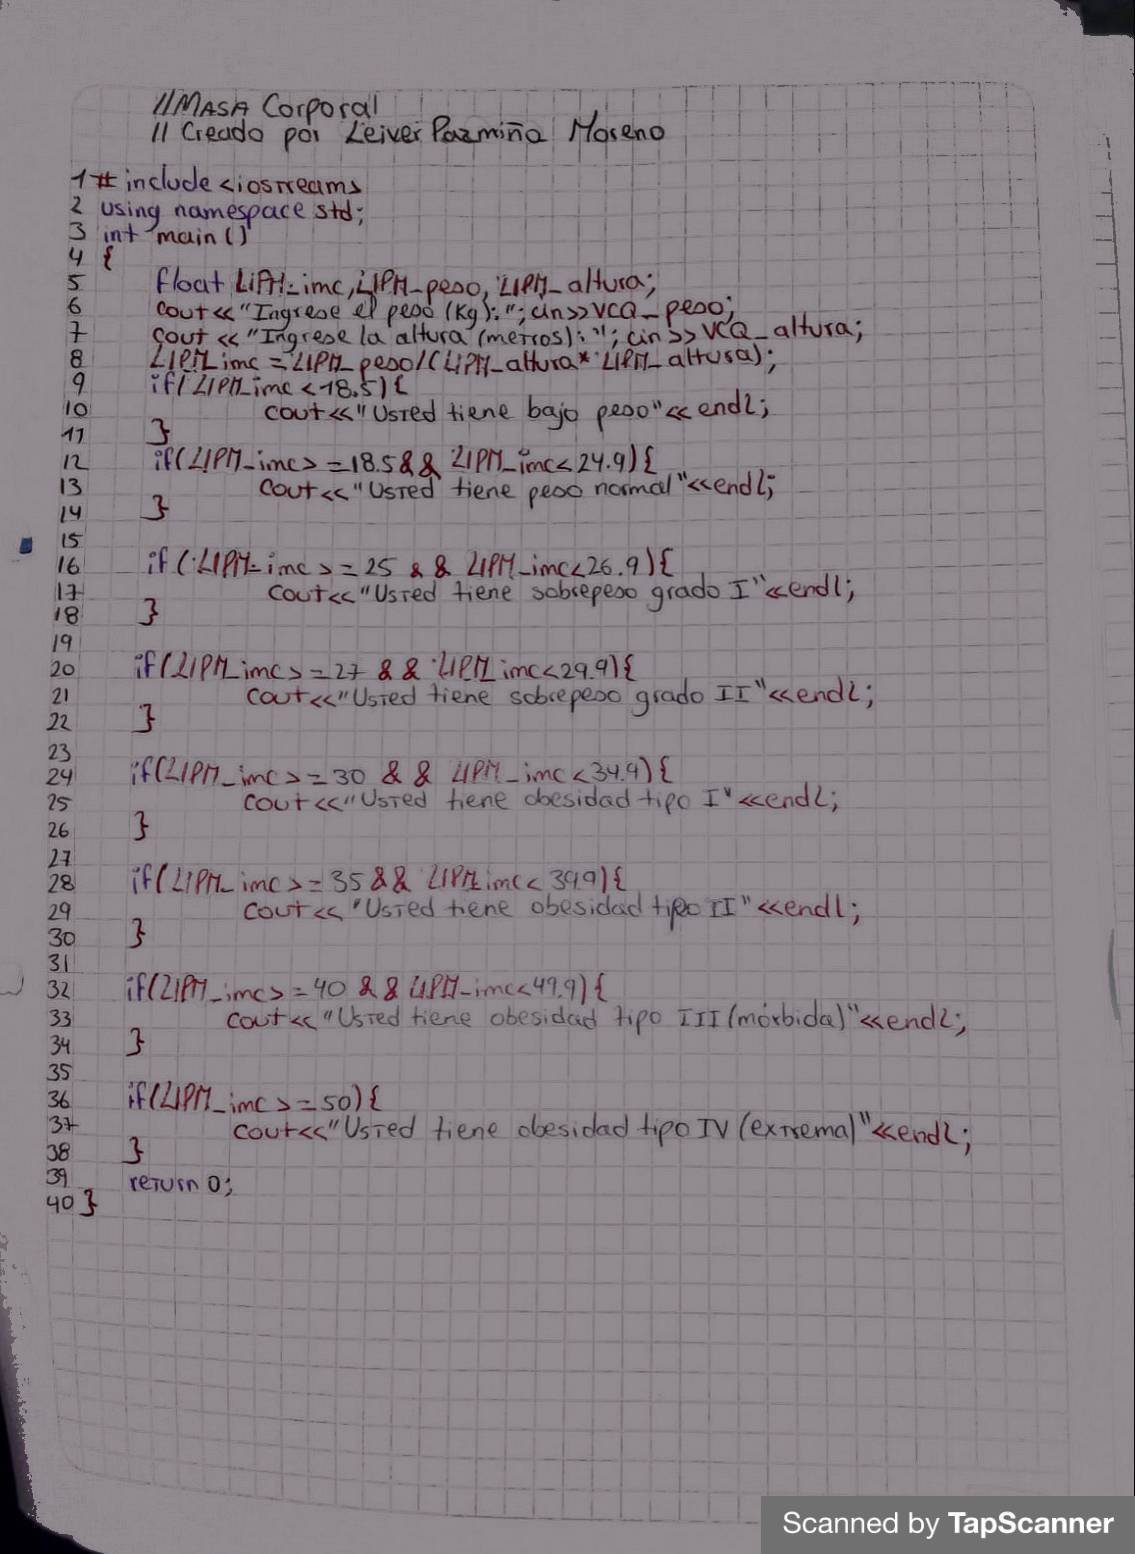 //MASA Corporal
// Creado por Leiver Pazmiña Moreno
1 # include <iostream>
2 using namespace std;
3 int main()
4 {
5 float LIPM_imc, LIPM_peso, LIPM_altura;
6 cout<<"Ingrese el peso (Kg):"; cin>>VCQ_peso;
7 cout << "Ingrese la altura (metros):"; cin>> VCQ_altura;
8 LIPM_imc = LIPM_peso/(LIPM_altura* LIPM_altura);
9 if(LIPM_imc <18.5){
10 cout<<"Usted tiene bajo peso"<< endl;
11 }
12 if(LIPM_imc> =18.5&& LIPM_imc<24.9){
13 cout<<"Usted tiene peso normal"<<endl;
14 }
15
16 if (LIPM_imc >=25 && LIPM_imc<26.9){
17 cout<<"Usted tiene sobrepeso grado I"<<endl;
18 }
19
20 if(LIPM_imc>=27 && LIPM_imc<29.9){
21 cout<<"Usted tiene sobrepeso grado II"<<endl;
22 }
23
24 if(LIPM_imc>=30 && LIPM_imc<34.9){
25 cout<<"Usted tiene obesidad tipo I"<<endl;
26 }
27
28 if(LIPM_imc>=35 && LIPM_imc< 39.9){
29 cout<< "Usted tiene obesidad tipo II"<<endl;
30 }
31
32 if(LIPM_imc>=40 && LIPM_imc<49.9){
33 cout<< "Usted tiene obesidad tipo III (mórbida)"<<endl;
34 }
35
36 if(LIPM_imc >=50){
37 cout<<"Usted tiene obesidad tipo IV (extrema)"<<endl;
38 }
39 return 0;
40 }
Scanned by TapScanner